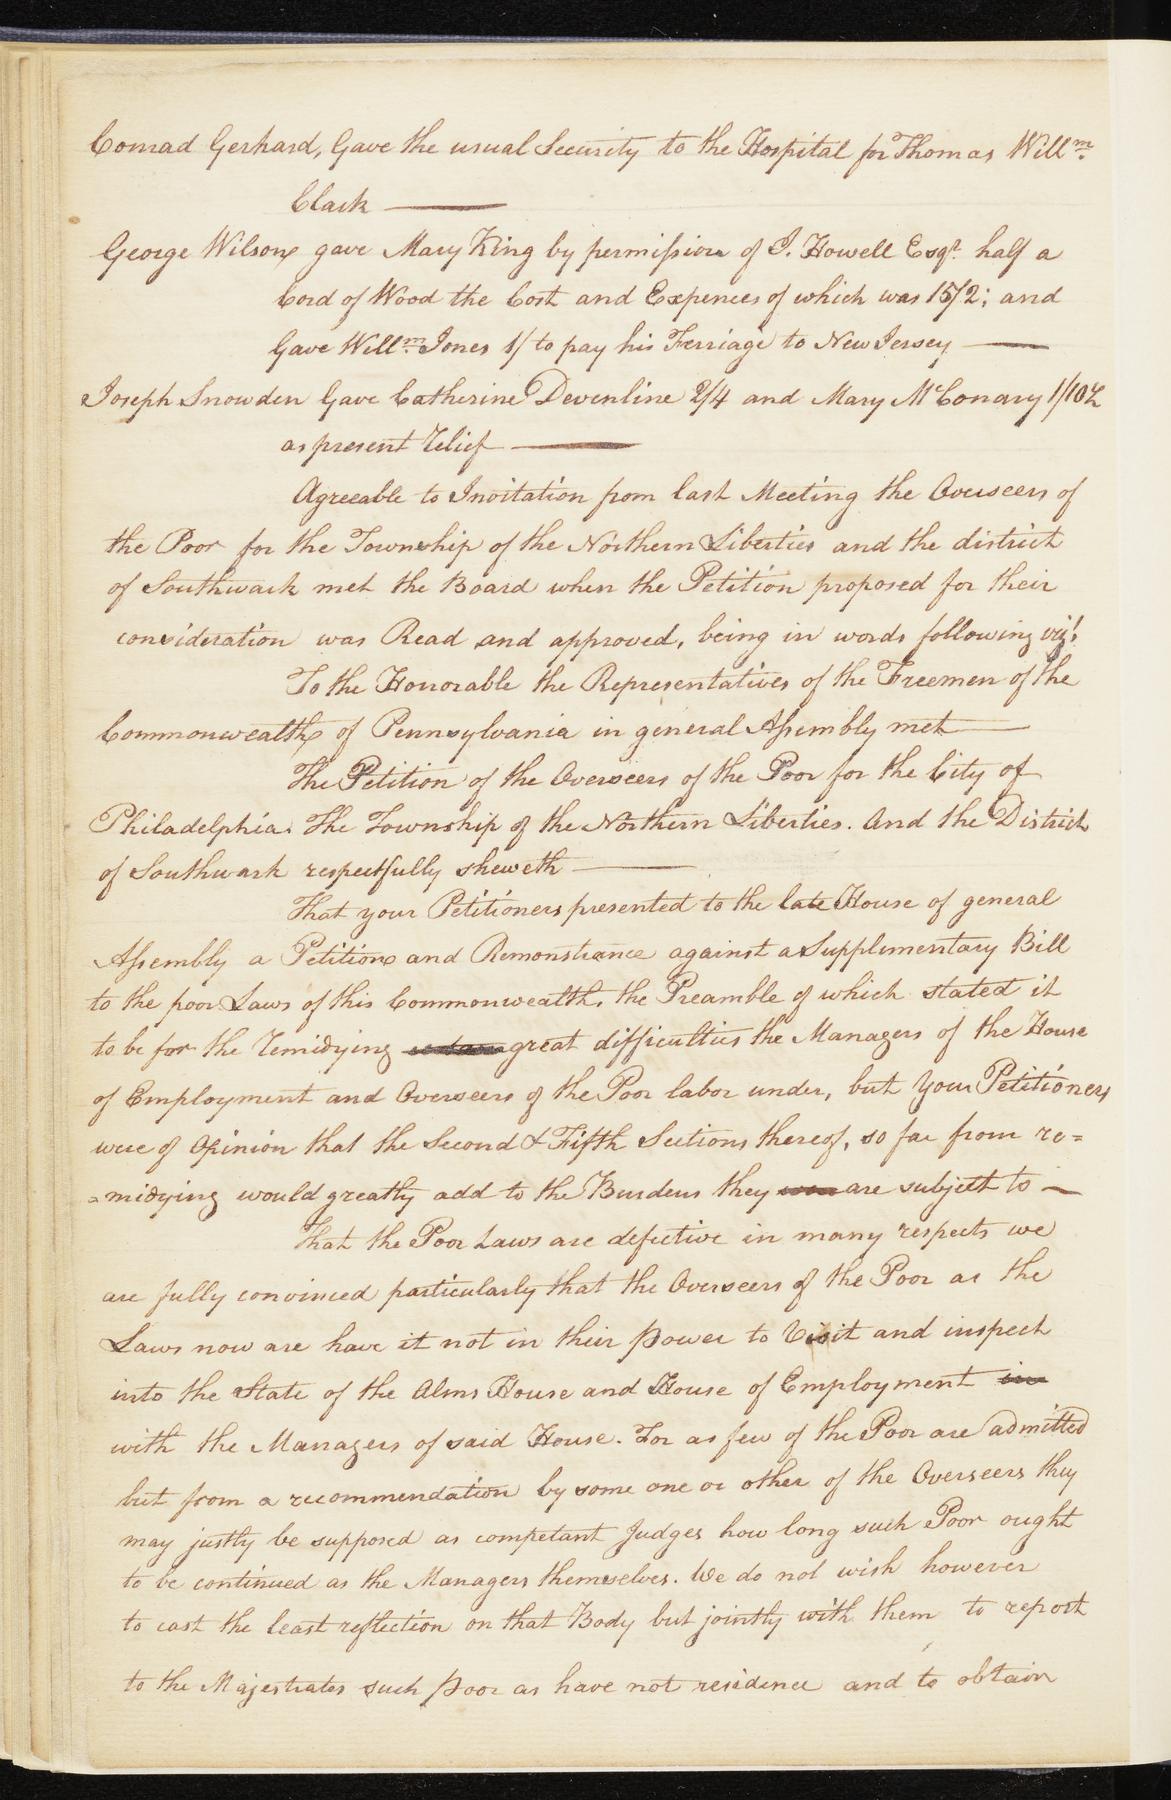 Conrad Gerhard, Gave the usual Security to the Hospital for Thomas Willm.
Clark
George Wilson gave Mary King by permission of J. Howell Esqr. half a
Cord of Wood the Cost and Expences of which was 15/2; and
Gave Willm. Jones 1/ to pay his Ferriage to New Jersey
Joseph Snowden Gave Catherine Devenline 2/4 and Mary McConary 1/10½
as present relief
Agreeable to Invitation from last Meeting the Overseers of
the Poor for the Township of the Northern Liberties and the district
of Southwark met the Board when the Petition proposed for their
consideration was Read and approved, being in words following vizt
To the Honorable the Representatives of the Freemen of the
Commonwealth of Pennsylvania in general Assembly met
The Petition of the Overseers of the Poor for the City of
Philadelphia. The Township of the Northern Liberties. And the District
of Southwark respectfully sheweth
That your Petitioners presented to the late House of general
Assembly a Petition and Remonstrance against a Supplimentary Bill
to the poor Laws of this Commonwealth, the Preamble of which stated it
to be for the remidying great difficulties the Managers of the House
of Employment and Overseers of the Poor labor under, but Your Petitioners
were of Opinion that the Second & Fifth Sections thereof, so far from re=
=midying would greatly add to the Burdens they are subject to
That the Poor Laws are defective in many respects we
are fully convinced particularly that the Overseers of the Poor as the
Laws now are have it not in their power to Visit and inspect
into the State of the Alms House and House of Employment in
with the Managers of said House. For as few of the Poor are admitted
but from a recommendation by some one or other of the Overseers they
may justly be supposed as competant Judges how long such Poor ought
to be continued as the Managers themselves. We do not wish however
to cast the least reflection on that Body but jointly with them to report
to the Majestrates such poor as have not residence and to obtain